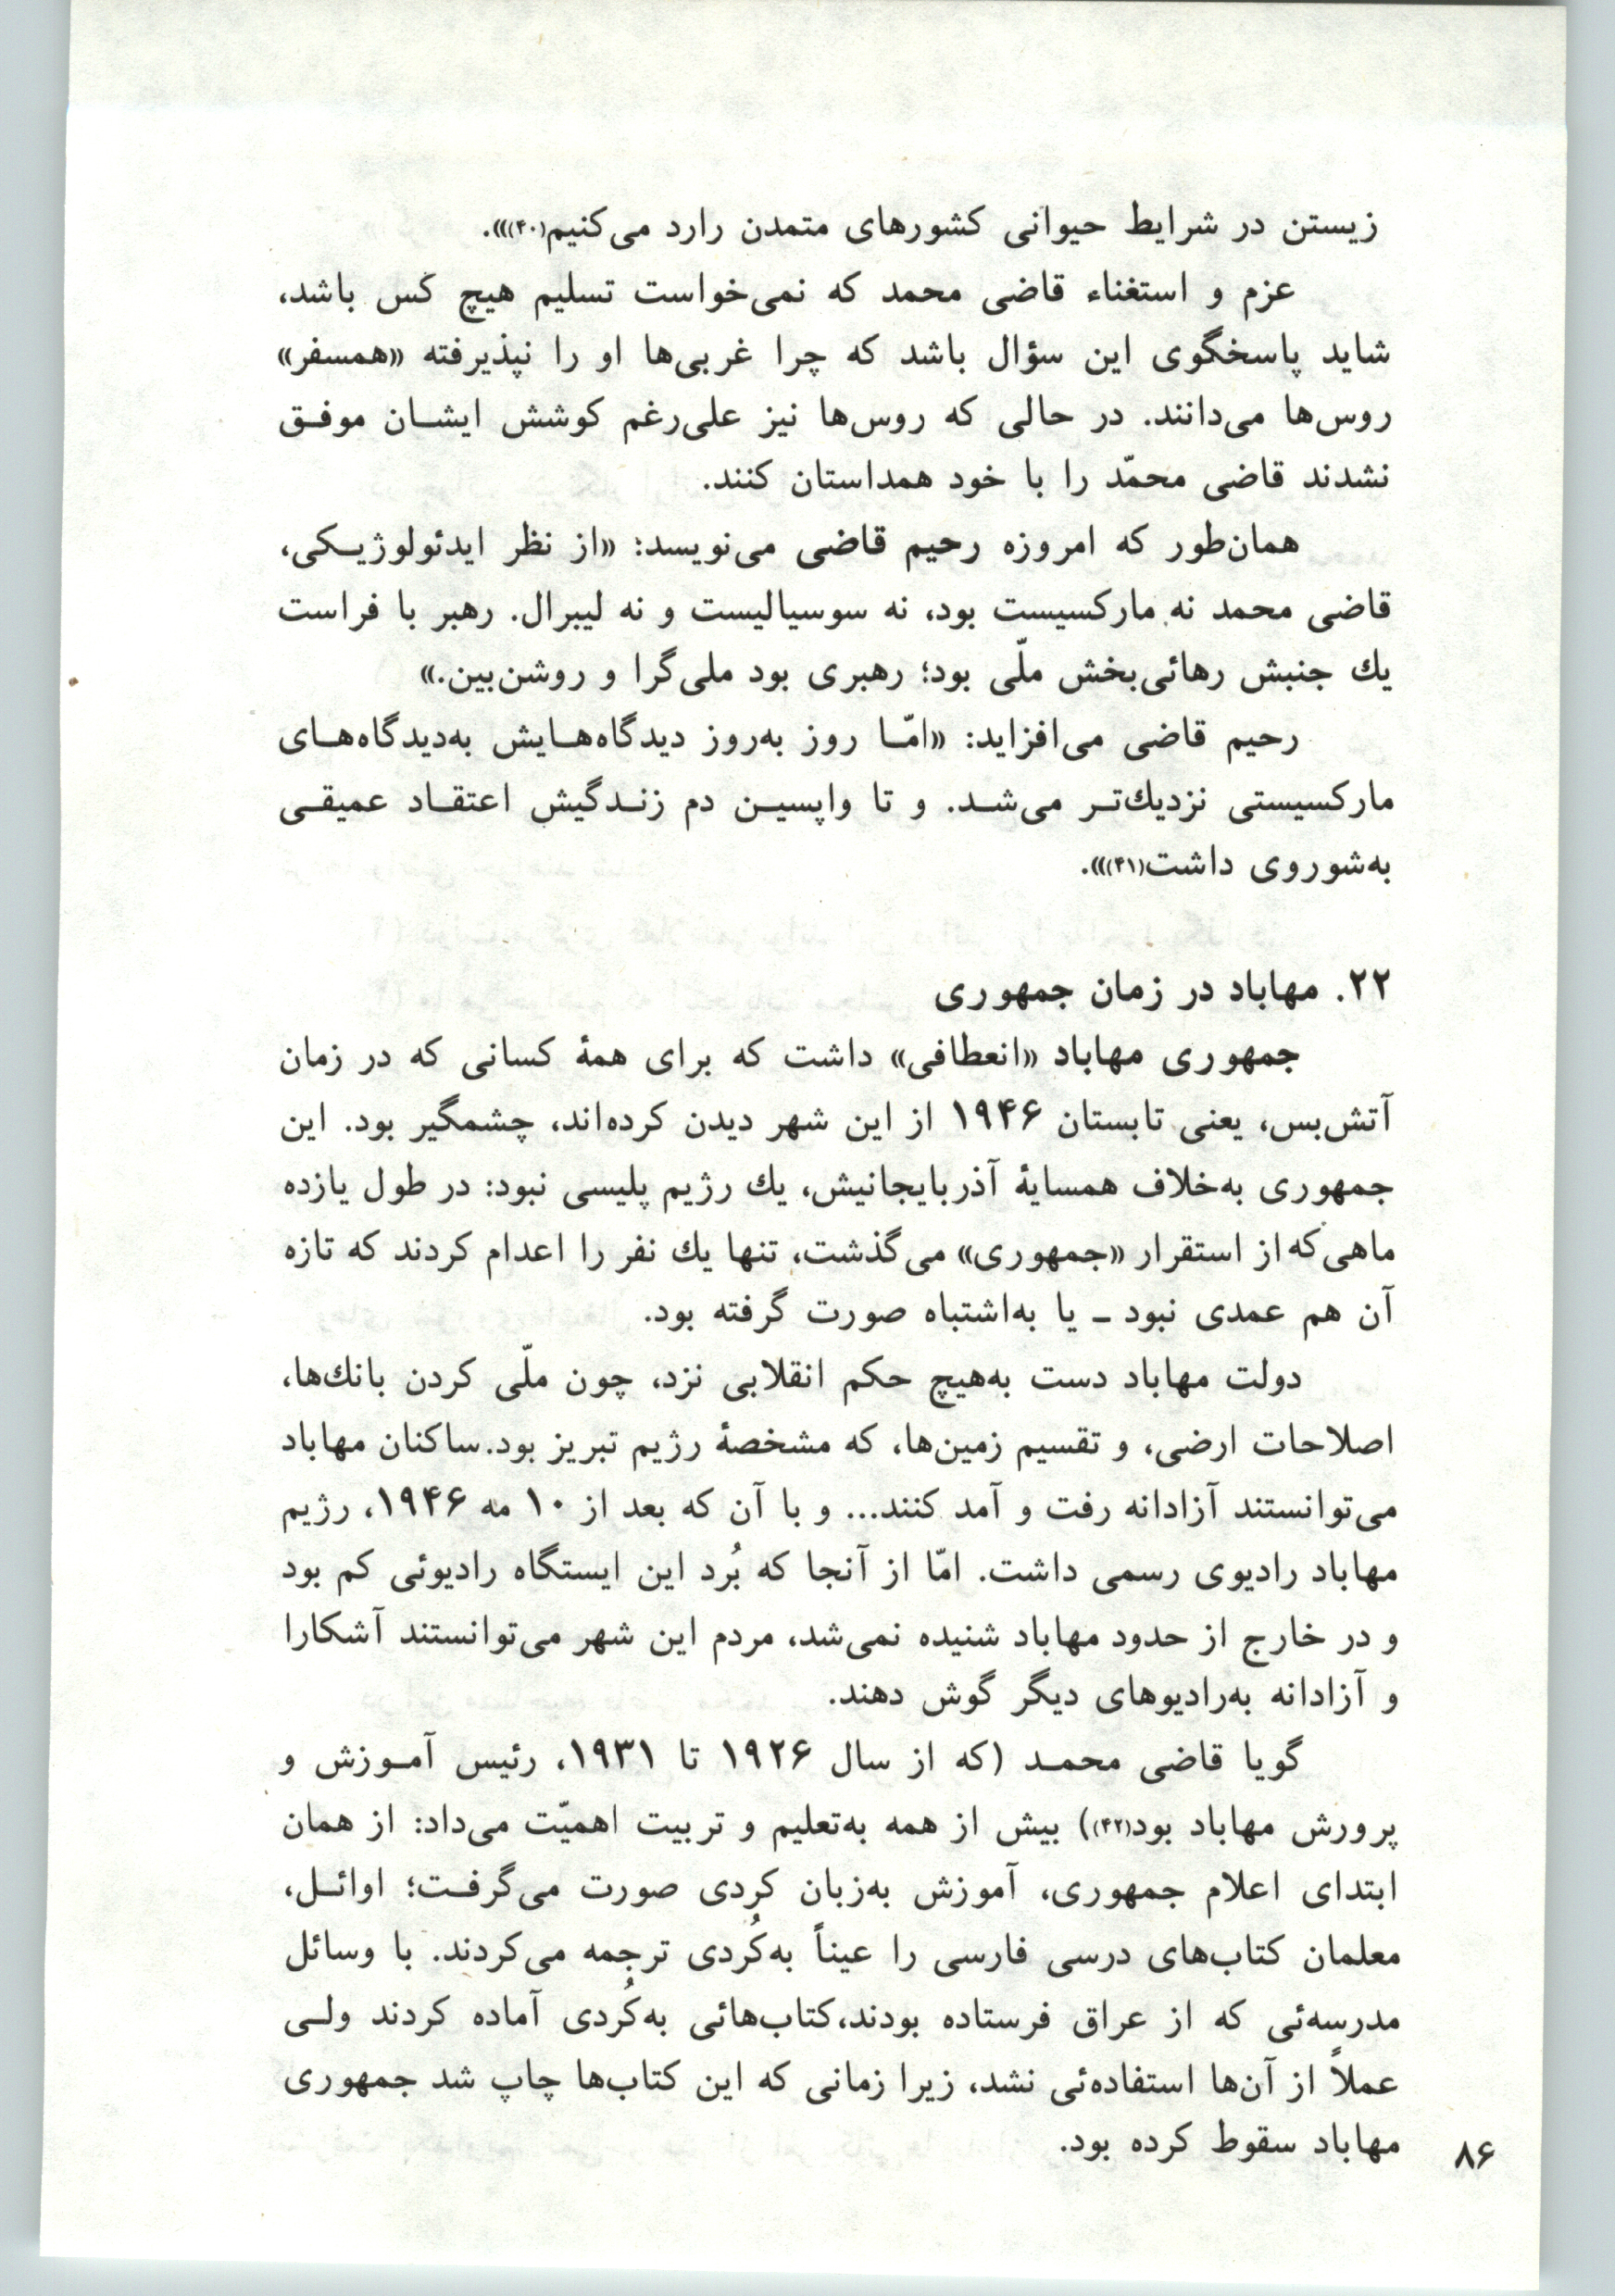 زیستن در شرایط حیوانی کشورهای متمدن رارد می‌کنیم(۴۰)».
عزم و استغناء قاضی محمد که نمی‌خواست تسلیم هیچ کس باشد،
شاید پاسخگوی این سؤال باشد که چرا غربی‌ها او را نپذیرفته «همسفر»
روس‌ها می‌دانند. در حالی که روس‌ها نیز علی‌رغم کوشش ایشان موفق
نشدند قاضی محمّد را با خود همداستان کنند.
همان‌طور که امروزه رحیم قاضی می‌نویسد: «از نظر ایدئولوژیکی،
قاضی محمد نه مارکسیست بود، نه سوسیالیست و نه لیبرال. رهبر با فراست
یك جنبش رهائی‌بخش ملّی بود؛ رهبری بود ملی‌گرا و روشن‌بین.»
رحیم قاضی می‌افزاید: «امّا روز به‌روز دیدگاه‌هایش به‌دیدگاه‌های
مارکسیستی نزدیك‌تر می‌شد. و تا واپسین دم زندگیش اعتقاد عمیقی
به‌شوروی داشت(۴۱)».
۲۲. مهاباد در زمان جمهوری
جمهوری مهاباد «انعطافی» داشت که برای همهٔ کسانی که در زمان
آتش‌بس، یعنی تابستان ۱۹۴۶ از این شهر دیدن کرده‌اند، چشمگیر بود. این
جمهوری به‌خلاف همسایهٔ آذربایجانیش، یك رژیم پلیسی نبود: در طول یازده
ماهی‌که از استقرار «جمهوری» می‌گذشت، تنها یك نفر را اعدام کردند که تازه
آن هم عمدی نبود ـ یا به‌اشتباه صورت گرفته بود.
دولت مهاباد دست به‌هیچ حکم انقلابی نزد، چون ملّی کردن بانك‌ها،
اصلاحات ارضی، و تقسیم زمین‌ها، که مشخصهٔ رژیم تبریز بود. ساکنان مهاباد
می‌توانستند آزادانه رفت و آمد کنند... و با آن که بعد از ۱۰ مه ۱۹۴۶، رژیم
مهاباد رادیوی رسمی داشت. امّا از آنجا که بُرد این ایستگاه رادیوئی کم بود
و در خارج از حدود مهاباد شنیده نمی‌شد، مردم این شهر می‌توانستند آشکارا
و آزادانه به‌رادیوهای دیگر گوش دهند.
گویا قاضی محمد (که از سال ۱۹۲۶ تا ۱۹۳۱، رئیس آموزش و
پرورش مهاباد بود(۴۲)) بیش از همه به‌تعلیم و تربیت اهمیّت می‌داد: از همان
ابتدای اعلام جمهوری، آموزش به‌زبان کردی صورت می‌گرفت؛ اوائل،
معلمان کتاب‌های درسی فارسی را عیناً به‌کُردی ترجمه می‌کردند. با وسائل
مدرسه‌ئی که از عراق فرستاده بودند،کتاب‌هائی به‌کُردی آماده کردند ولی
عملاً از آن‌ها استفاده‌ئی نشد، زیرا زمانی که این کتاب‌ها چاپ شد جمهوری
مهاباد سقوط کرده بود.
۸۶